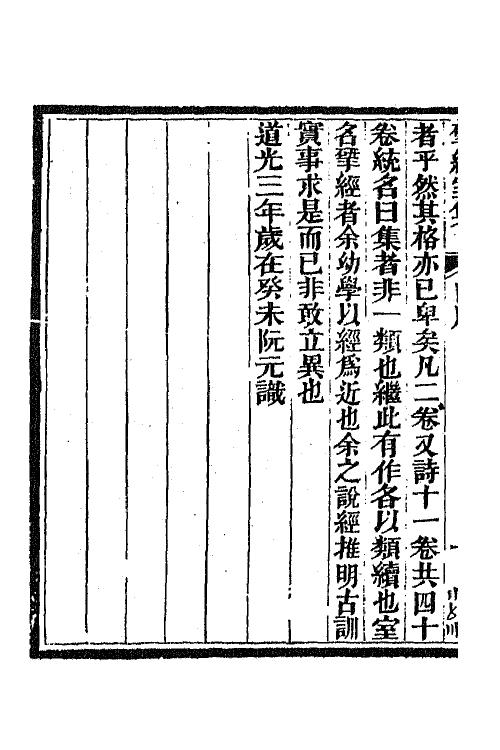 者乎然其格亦已卑矣凡二卷又詩十一卷共四十
卷統名曰集者非一類也繼此有作各以類續也室
名揅經者余幼學以經爲近也余之說經推明古訓
實事求是而已非敢立異也
道光三年歲在癸未阮元識